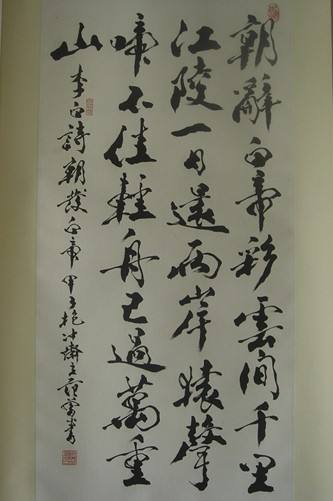 朝辭白帝彩雲間千里
江陵一日還兩岸猿聲
啼不住輕舟已過萬重
山 李白詩朝發白帝 甲子